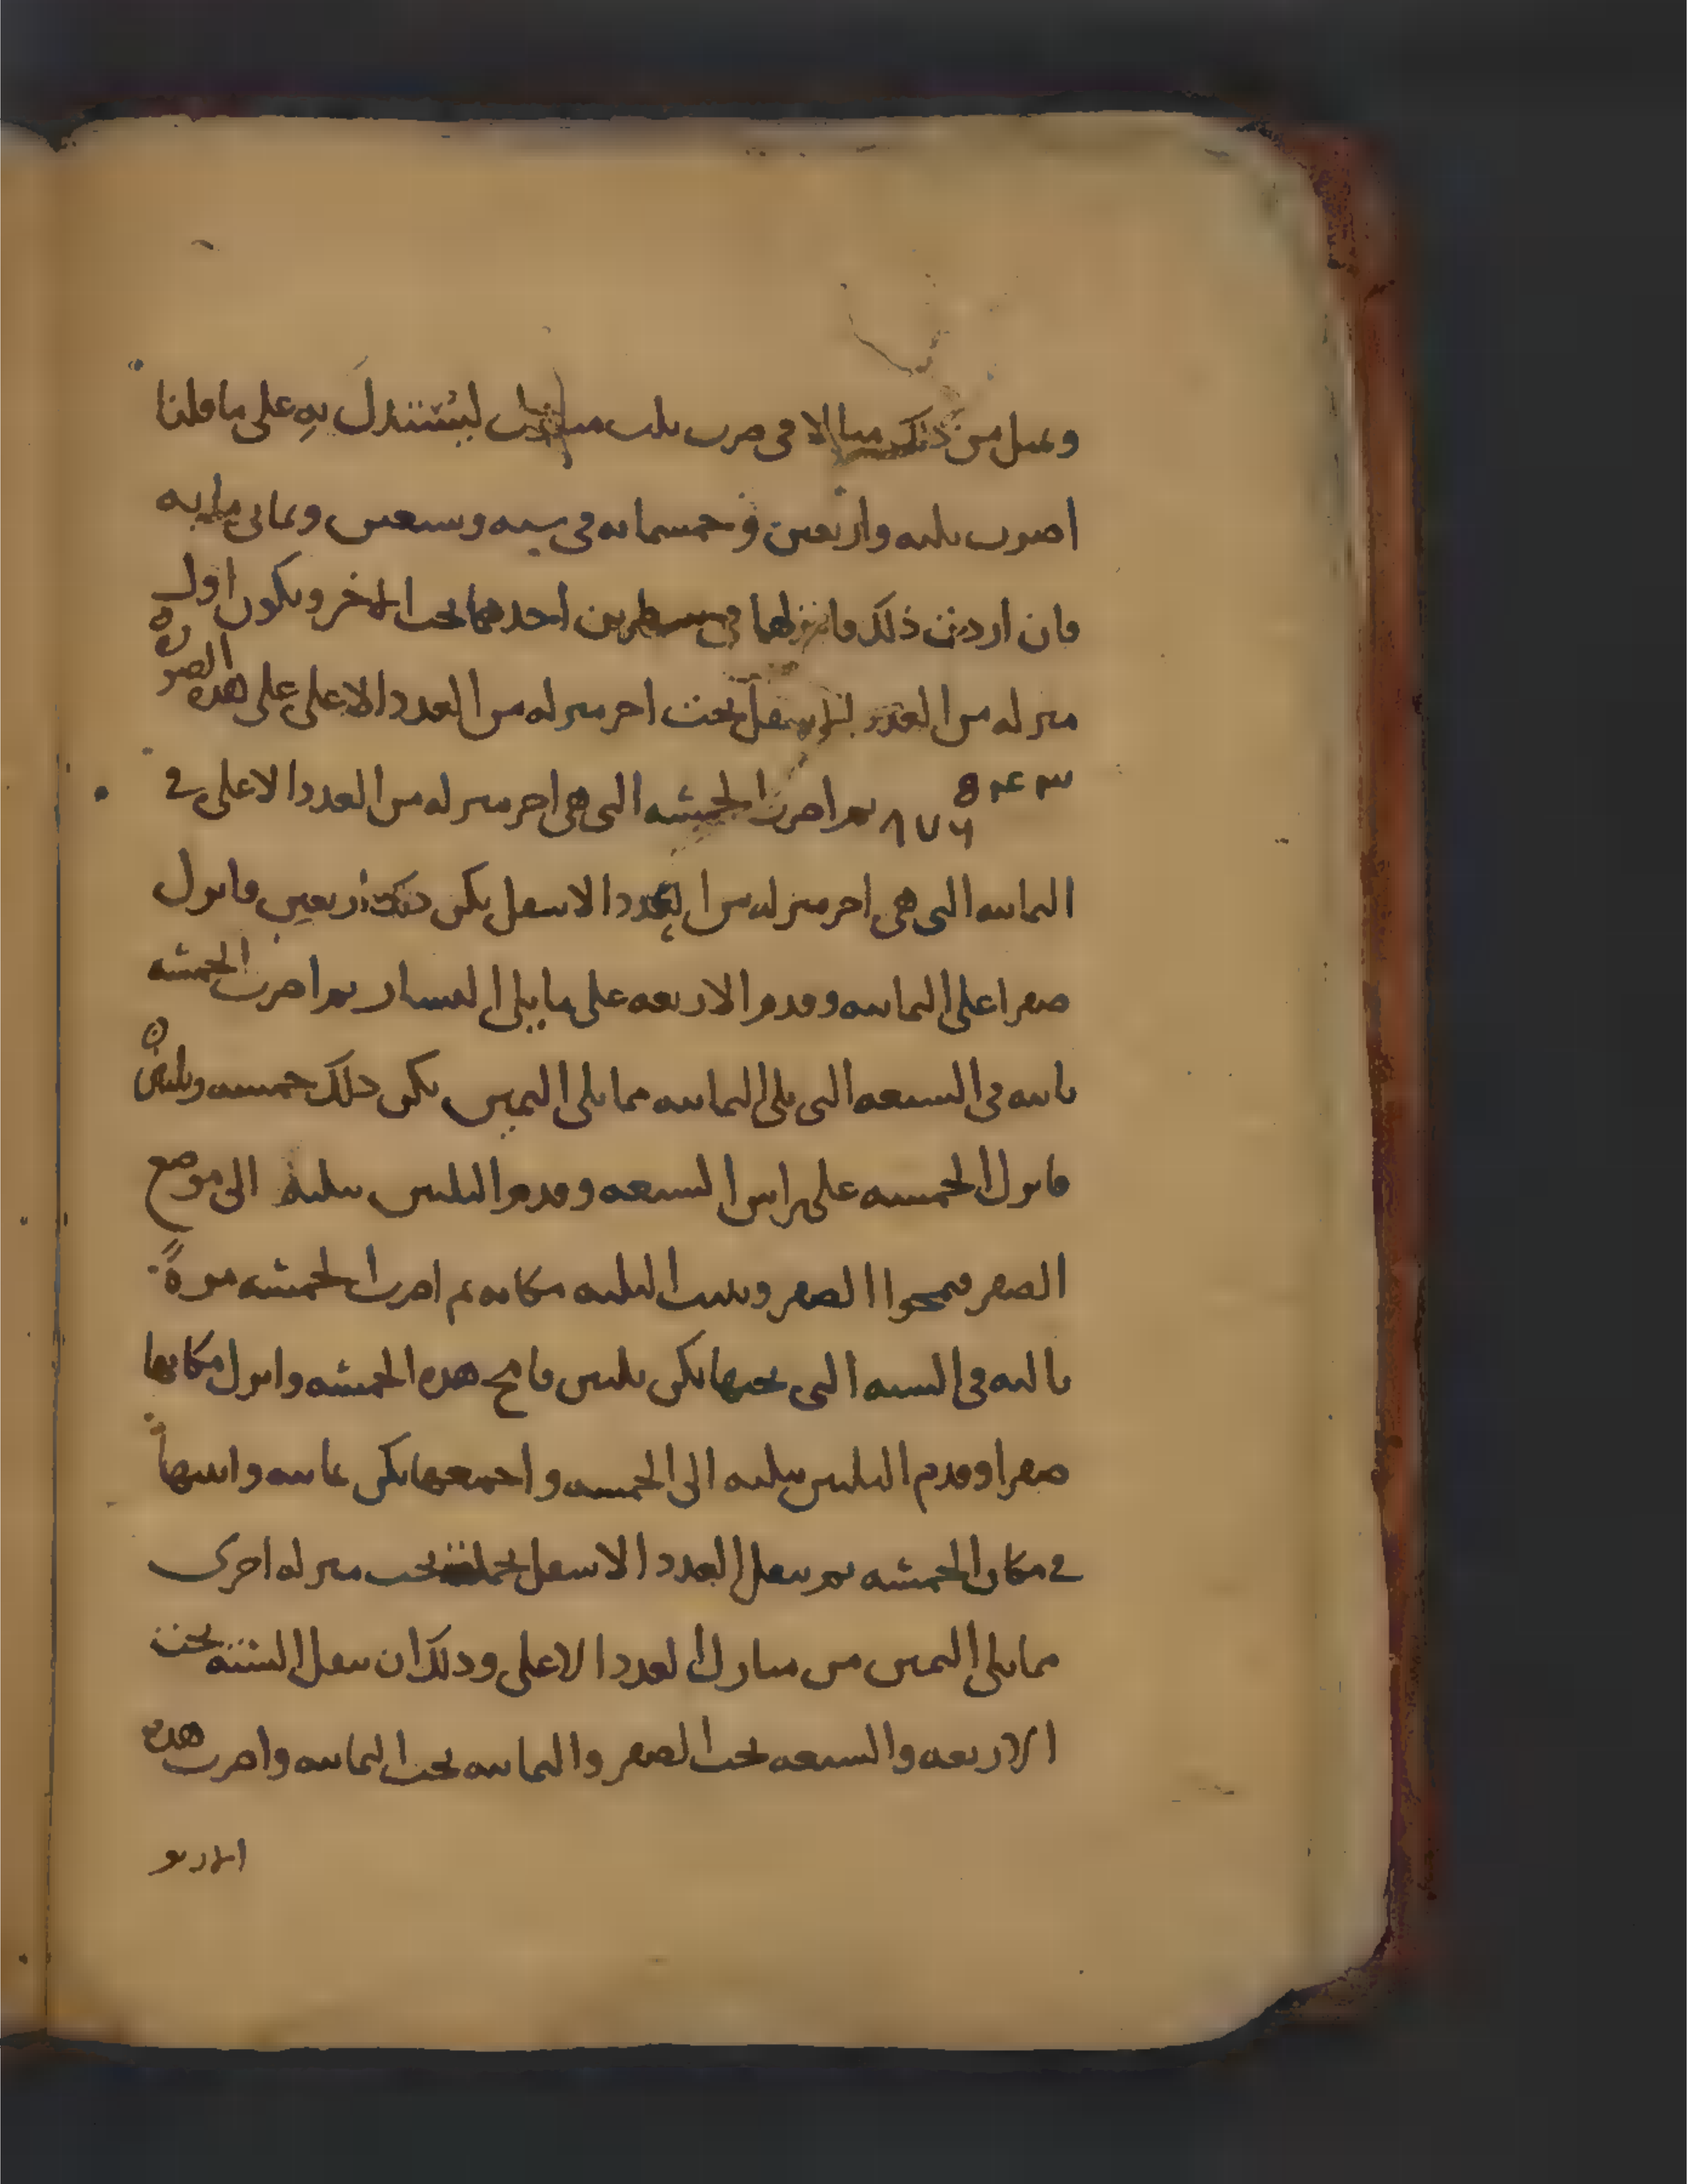 ونمثل من ذلك مثالا فى ضرب ثلث منازل ليستدل به على ما قلنا
اضرب ثلثه واربعين وخمسمائه فى سته وسبعين وثمانى مايه
فان اردت ذلك فانزلهما فى سطرين احدهما تحت الاخر ويكون اول
منزله من العدد الاسفل تحت اخر منزله من العدد الاعلى على هذه الصوره
ثم اضرب الخمسه التى هى اخر منزله من العدد الاعلى فى
الثمانيه التى هى اخر منزله من العدد الاسفل يكن ذلك اربعين فانزل
صفرا على الثمانيه وقدم الاربعه على ما يلى اليسار ثم اضرب الخمسه
ثانيه فى السبعه التى تلى الثمانيه مما يلى اليمين يكن ذلك خمسه وثلثين
فانزل الخمسه على راس السبعه وقدم الثلثين بثلثه الى موضع
الصفر فتمحوا الصفر وتثبت الثلثه مكانه ثم اضرب الخمسه مرة
ثالثه فى السته التى تحتها يكن ثلثين فامح هذه الخمسه وانزل مكانها
صفرا وقدم الثلثين بثلثه الى الخمسه واجمعها يكن ثمانيه واثبتها
فى مكان الخمسه ثم تنقل العدد الاسفل بجملته تحت منزله اخرى
مما يلى اليمين من منازل العدد الاعلى وذلك ان تنقل السته تحت
الاربعه والسبعه تحت الصفر والثمانيه تحت الثمانيه واضرب هذه
الاربعـ